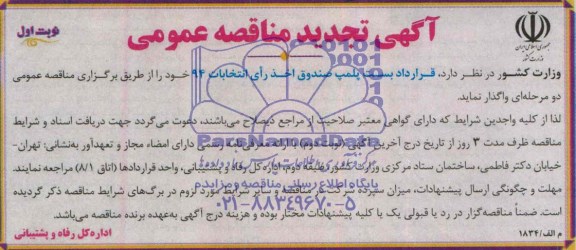 نوبت اول
آگهی تجدید مناقصه عمومی
جمهوری اسلامی ایران
وزارت کشور
وزارت کشور در نظر دارد، قرارداد بست پلمپ صندوق اخذ رأی انتخابات ۹۴ خود را از طریق برگزاری مناقصه عمومی
دو مرحله‌ای واگذار نماید.
لذا از کلیه واجدین شرایط که دارای گواهی معتبر صلاحیت از مراجع ذیصلاح می‌باشند، دعوت می‌گردد جهت دریافت اسناد و شرایط
مناقصه ظرف مدت ۳ روز از تاریخ درج آخرین آگهی دارای امضاء مجاز و تعهدآور به‌نشانی: تهران-
خیابان دکتر فاطمی، ساختمان ستاد مرکزی وزارت کشور، طبقه دوم، اداره کل رفاه و پشتیبانی، واحد قراردادها (اتاق ۸/۱) مراجعه نمایند.
مهلت و چگونگی ارسال پیشنهادات، میزان سپرده شرکت در مناقصه و سایر شرایط مورد لزوم در برگ‌های شرایط مناقصه ذکر گردیده
است. ضمناً مناقصه‌گزار در رد یا قبولی یک یا کلیه پیشنهادات مختار بوده و هزینه درج آگهی به‌عهده برنده مناقصه می‌باشد.
م الف/۱۸۳۴
اداره کل رفاه و پشتیبانی
ParsNamadData
پایگاه اطلاع رسانی مناقصه و مزایده
۰۲۱-۸۸۳۴۹۶۷۰-۵